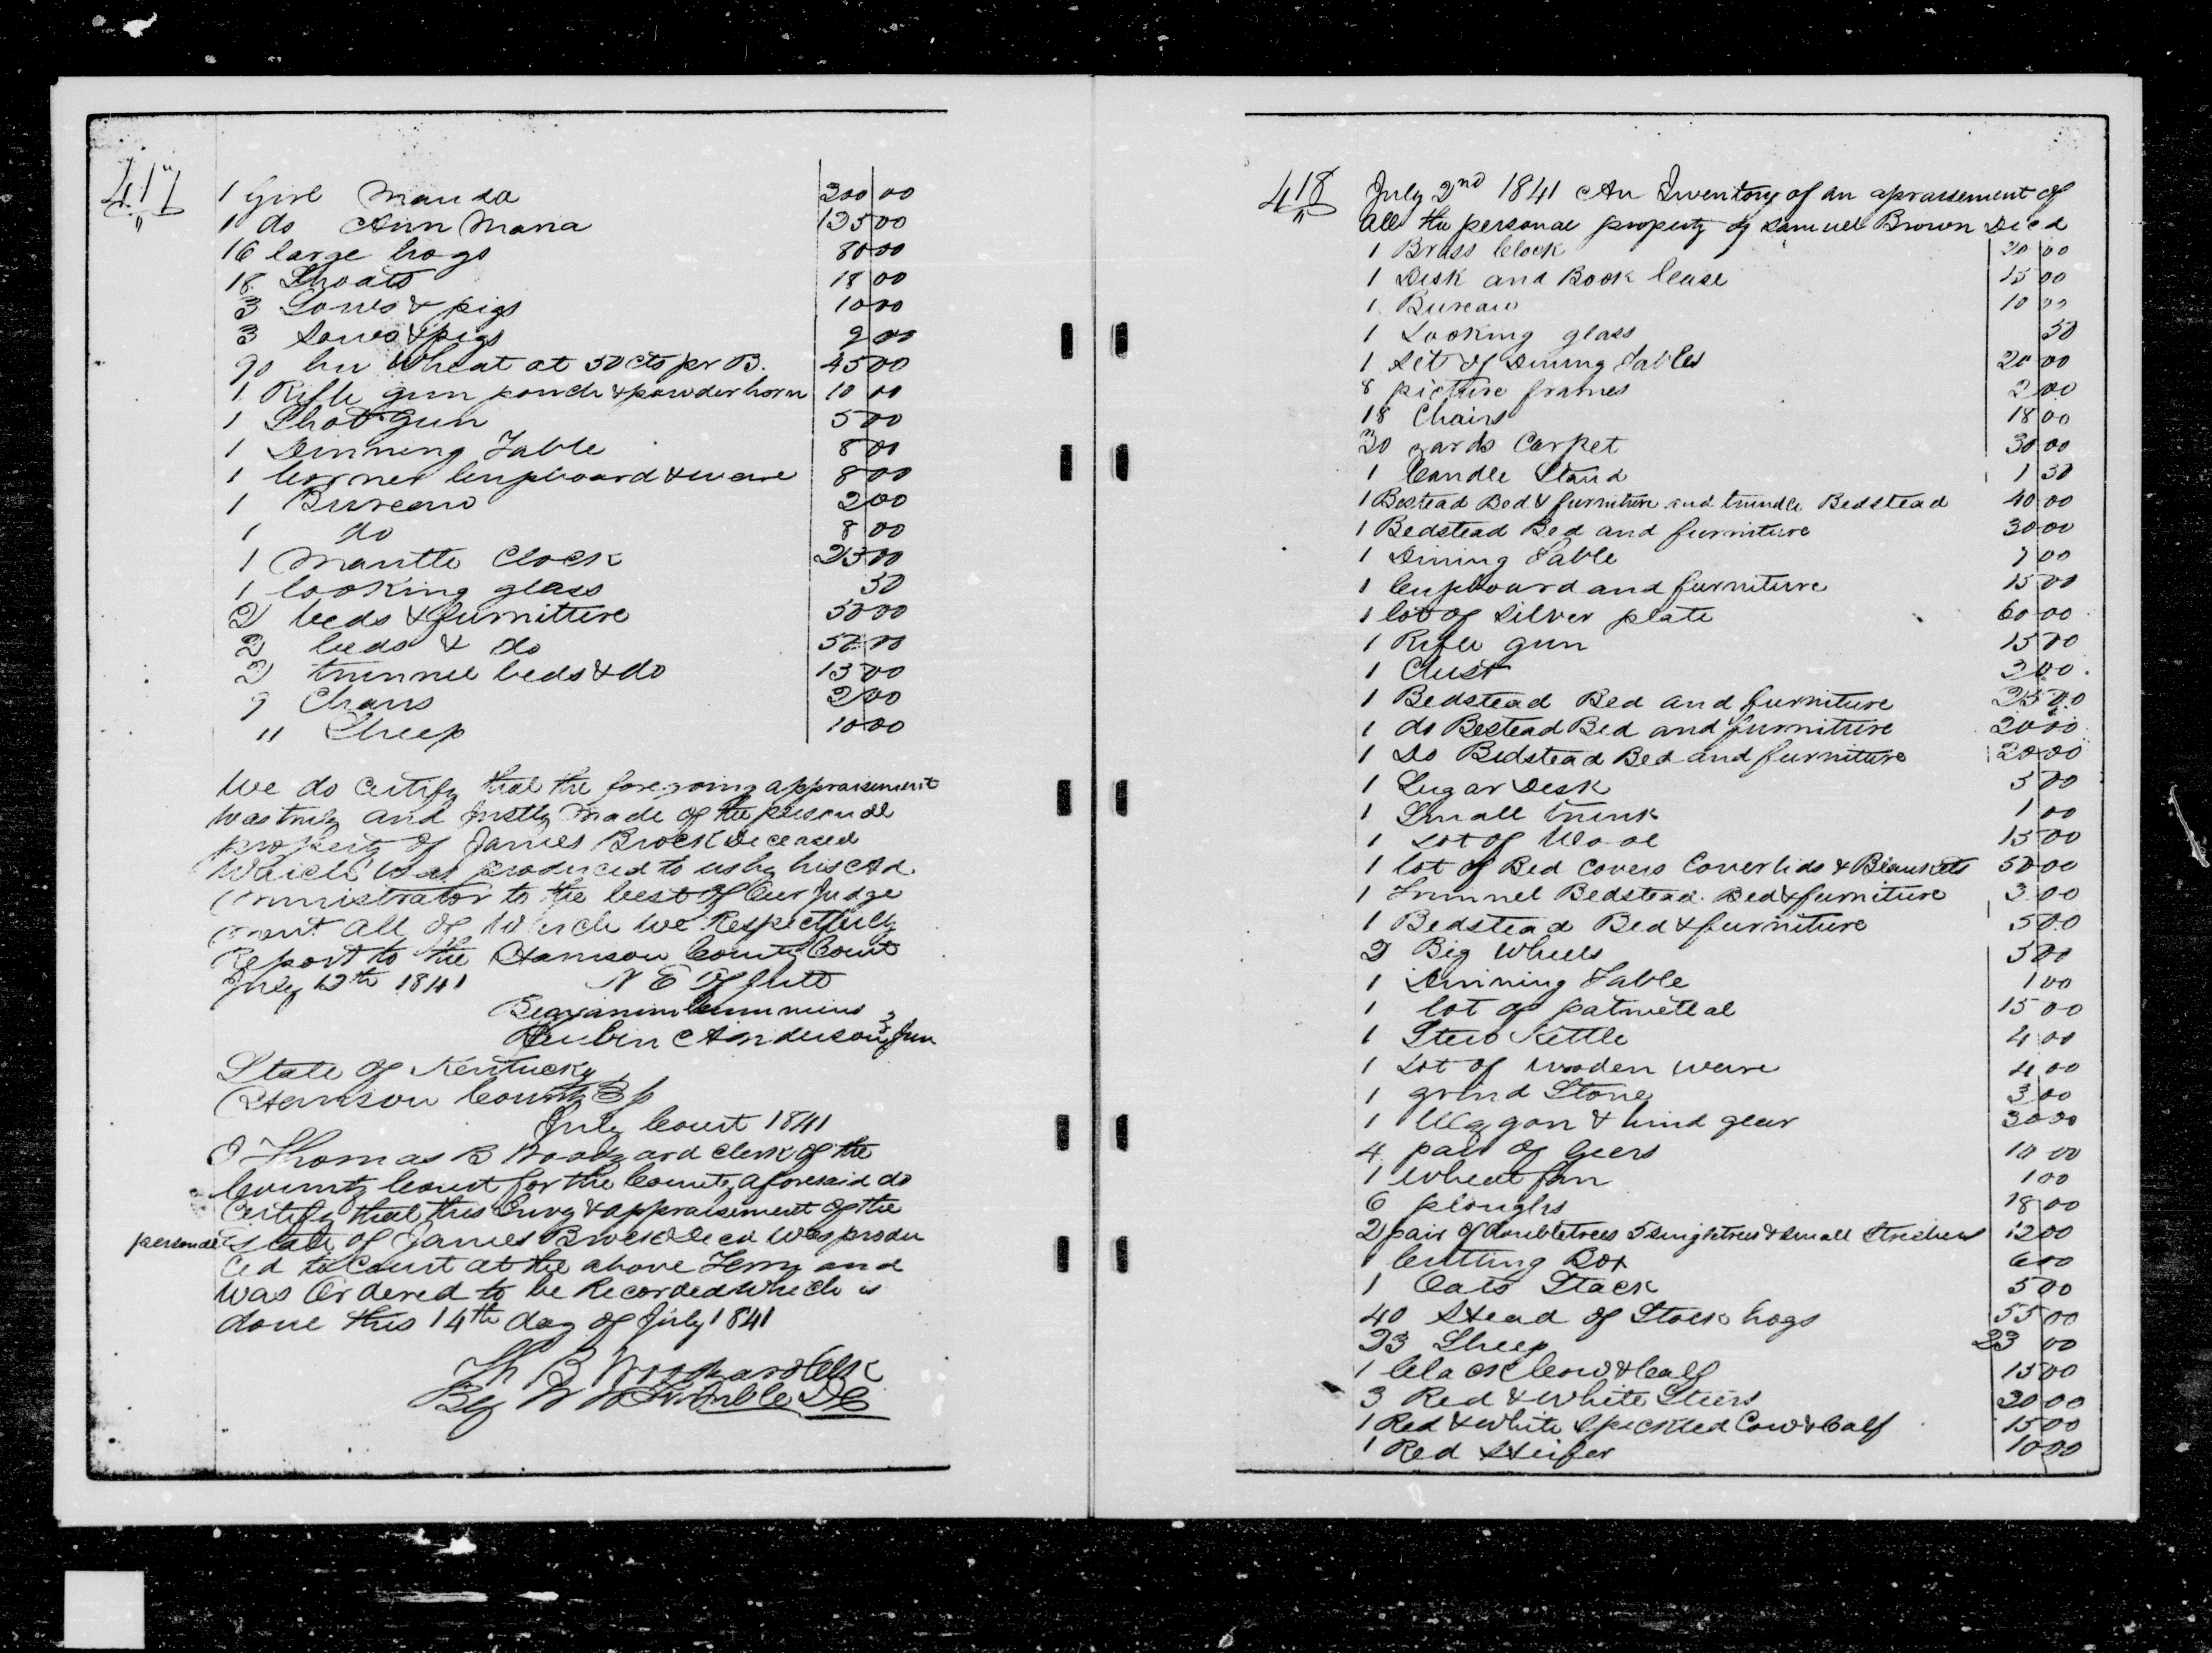 417
1 Girl Manda 200 00
1 do Ann Maria 135 00
16 large hogs 80 00
18 Shoats 18 00
3 Sows & pigs 10 00
3 Sows & pigs 9 00
90 bu Wheat at 50 cts pr B. 45 00
1 Rifle gun pouch & powder horn 10 00
1 Shot gun 5 00
1 Dinning Table 8 00
1 Corner Cupboard & ware 8 00
1 Bureau 2 00
1 do 8 00
1 Mantle Clock 25 00
1 looking glass 50
2 beds & furniture 50 00
2 beds & do 50 00
2 trunnel beds & do 15 00
9 Chairs 2 00
11 Sheep 10 00
We do certify that the foregoing appraisment
was truly and justly made of the personal
property of James Brock Deceased
Which was produced to us by his Ad
ministrator to the best of our Judge
ment all of which we Respectfully
Report to the Harrison County Court
July 12th 1841 N E Offutt
Benjamin Cummins
Reubin C Anderson Jun
State of Kentucky
Harrison County Sc
July Court 1841
I Thomas B Woodyard Clerk of the
County Court for the County aforesaid do
Certify that this Invy & appraisement of the
personal Estate of James Brock Decd Was produ
ced to Court at the above Term and
was Ordered to be Recorded Which is
done this 14th day of July 1841
Th B Woodyard Clk
By W W Trimble DC
418
July 2nd 1841 An Inventory of an aprassement of
all the personal property of Samuel Brown Decd
1 Brass Clock 20 00
1 Desk and Book Case 15 00
1 Bureau 10 00
1 Looking glass 50
1 Set of Dining Tables 20 00
8 picture frames 2 00
18 Chairs 18 00
30 yards Carpet 30 00
1 Candle Stand 1 50
1 Bestead Bed & furniture and trundle Bedstead 40 00
1 Bedstead Bed and furniture 30 00
1 Dining Table 7 00
1 Cupboard and furniture 15 00
1 lot of Silver plate 60 00
1 Rifle gun 15 00
1 Chest 2 00
1 Bedstead Bed and furniture 25 00
1 do Bestead Bed and furniture 20 00
1 Do Bedstead Bed and furniture 20 00
1 Sugar Desk 5 00
1 Small trunk 1 00
1 Lot of Wool 15 00
1 lot of Bed Covers Coverlids & Blankets 50 00
1 Trunnel Bedstead Bed & furniture 3 00
1 Bedstead Bed & furniture 5 00
2 Big Wheels 3 00
1 Dinning Table 1 00
1 lot of patmeteal 15 00
1 Stew Kettle 4 00
1 Lot of Wooden ware 4 00
1 grind Stone 3 00
1 Waggon & hind gear 30 00
4 pair of Geers 10 00
1 Wheat fan 1 00
6 ploughs 18 00
2 pair of doubletrees 5 singletrees & small Strechers 12 00
1 Cutting Box 6 00
1 Oats Stack 5 00
40 Head of Stock hogs 55 00
23 Sheep 23 00
1 black Cow & Calf 15 00
3 Red & White Steers 30 00
1 Red & White Speckled Cow & Calf 15 00
1 Red Heifer 10 00